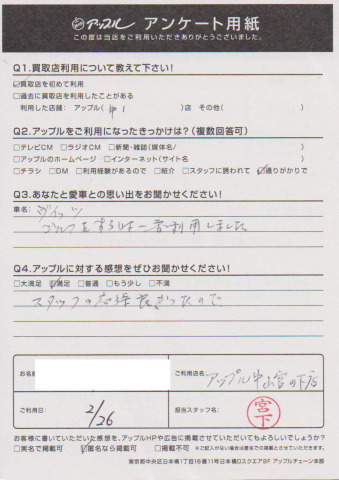 アップル アンケート用紙
この度は当店をご利用いただきありがとうございました。
Q1.買取店利用について教えて下さい!
☑買取店を初めて利用
□過去に買取店を利用したことがある
利用した店舗: アップル( )店 その他( )
Q2.アップルをご利用になったきっかけは?(複数回答可)
□テレビCM □ラジオCM □新聞・雑誌(媒体名/ )
□アップルのホームページ □インターネット(サイト名 )
□チラシ □DM □利用経験があるので □紹介 □スタッフに誘われて ☑通りがかりで
Q3.あなたと愛車との思い出をお聞かせください!
車名: ヴィッツ
ゴルフをするのは一番利用しました
Q4.アップルに対する感想をぜひお聞かせください!
□大満足 ☑満足 □普通 □もう少し □不満
スタッフの応接良かったので
お名前
ご利用店名: アップル 宮の下店
ご利用日: 2/26
担当スタッフ名: 宮下
お客様に書いていただいた感想を、アップルHPや広告に掲載させていただいてもよろしいでしょうか?
□実名で掲載可 ☑匿名なら掲載可 □掲載不可 ※ご記入がない場合は匿名での掲載とさせていただきます。
東京都中央区日本橋1丁目16番11号日本橋Dスクエア8F アップルチェーン本部